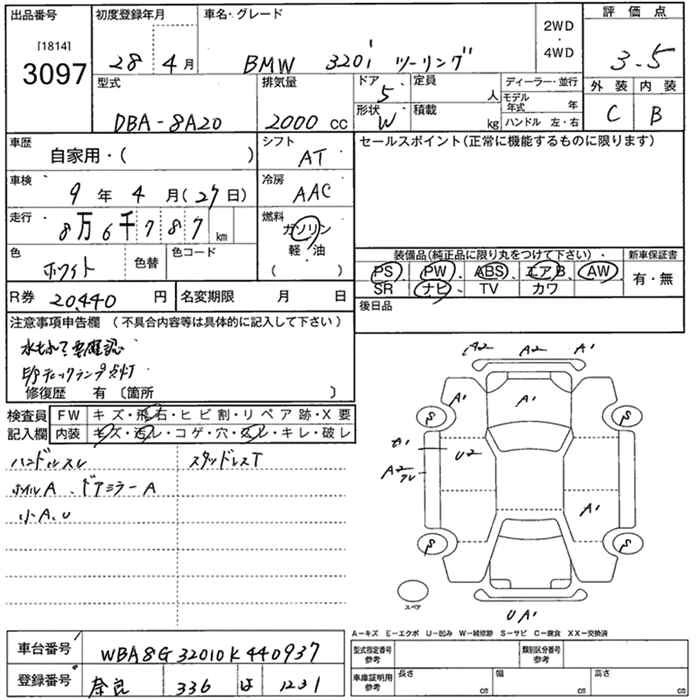 出品番号 初度登録年月 車名・グレード 2WD・4WD 評価点
[1814]
3097 28年4月 BMW 320i ツーリング 3.5
型式 排気量 ドア 5 定員 人 ディーラー・並行 外装 内装
DBA-8A20 2000 cc 形状 W 積載 kg モデル年式 年 C B
ハンドル 左・右
車歴 自家用・( ) シフト AT セールスポイント(正常に機能するものに限ります)
車検 9年4月(27日) 冷房 AAC
走行 8万6千787 km 燃料 ガソリン
軽・油
( )
色 ホワイト 色替 色コード
装備品(純正品に限り丸をつけて下さい)・ 新車保証書
PS PW ABS エアB AW 有・無
SR ナビ TV カワ
R券 20,440 円 名変期限 月 日 後日品
注意事項申告欄 (不具合内容等は具体的に記入して下さい)
水もれ 要確認
E/gチェックランプ点灯
修復歴 有 〔箇所 〕
検査員 FW キズ・飛石・ヒビ割・リペア跡・X要
記入欄 内装 キズ・汚レ・コゲ・穴・スレ・キレ・破レ
ハンドルスレ スタッドレスT
ホイルA、ドアミラーA
小A、U
A2 A2 A1
A1
S S
A1 U2
A2
A1
S S
スペア
UA1
A-キズ E-エクボ U-凹み W-補修跡 S-サビ C-腐食 XX-交換済
車台番号 WBA8G32010K440937 型式指定番号 参考 類別区分番号 参考
登録番号 奈良 336 は 1231 車庫証明用 参考 長さ cm 幅 cm 高さ cm